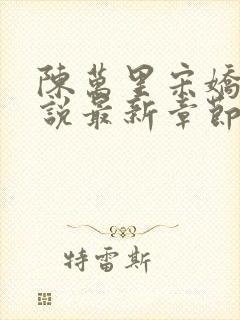 陳萬里宋嬌
說最新章節
特雷斯